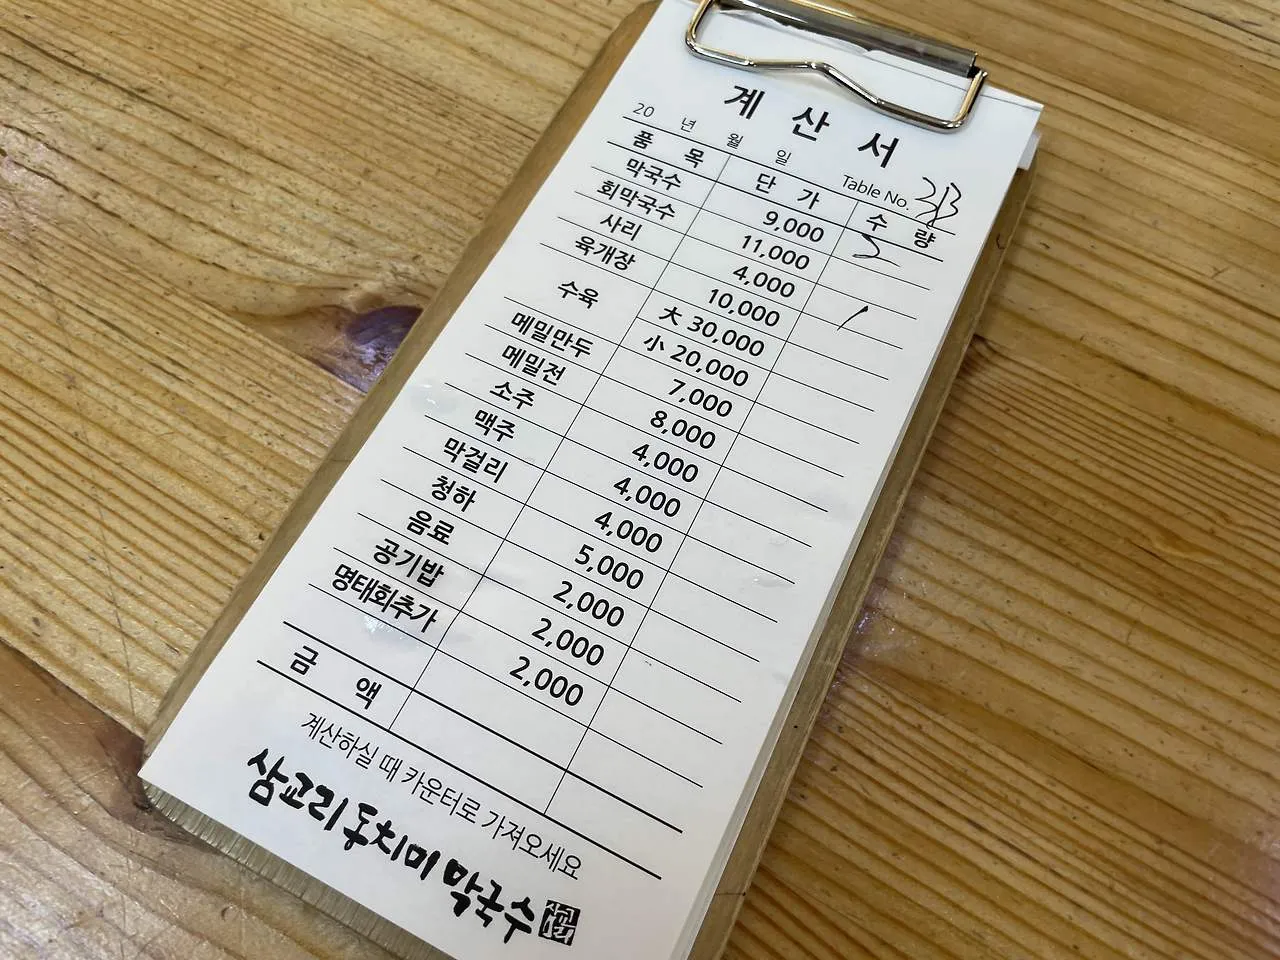 계산서
20 년 월 일 Table No. 33
품목 단가 수량
막국수 9,000 2
회막국수 11,000
사리 4,000 /
육개장 10,000
수육 大 30,000
小 20,000
메밀만두 7,000
메밀전 8,000
소주 4,000
맥주 4,000
막걸리 4,000
청하 5,000
음료 2,000
공기밥 2,000
명태회추가 2,000
금액
계산하실 때 카운터로 가져오세요
삼교리동치미막국수